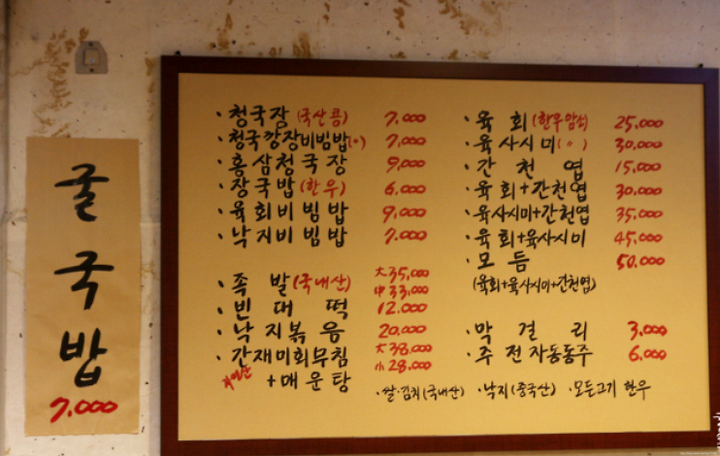 굴
국
밥
7,000
· 청국장 (국산콩) 7,000
· 청국깡장비빔밥(〃) 7,000
· 홍삼청국장 9,000
· 장국밥 (한우) 6,000
· 육회비빔밥 9,000
· 낙지비빔밥 7,000
· 족 발 (국내산) 大 35,000
中 33,000
· 빈 대 떡 12.000
· 낙지볶음 20,000
· 간재미회무침 大 38,000
+매운탕 小 28,000
· 육 회 (한우암소) 25,000
· 육사시미 (〃) 30,000
· 간 천 엽 15,000
· 육회+간천엽 30,000
· 육사시미+간천엽 35,000
· 육회+육사시미 45,000
· 모 듬 50,000
(육회+육사시미+간천엽)
· 막 걸 리 3,000
· 주전자동동주 6,000
· 쌀·김치(국내산) · 낙지(중국산) · 모든고기 한우